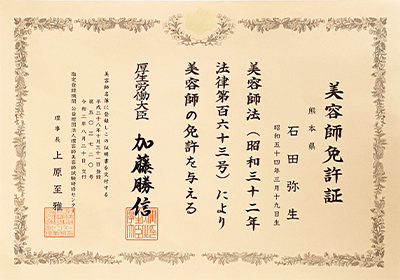 美容師免許証
熊本県
石田弥生
昭和五十四年三月十九日生
美容師法(昭和三十二年
法律第百六十三号)により
美容師の免許を与える
厚生労働大臣 加藤勝信
美容師名簿に登録しこの証明書を交付する
令和二年八月二十日交付
指定登録機関 公益財団法人理容師美容師試験研修センター
理事長 上原至雅